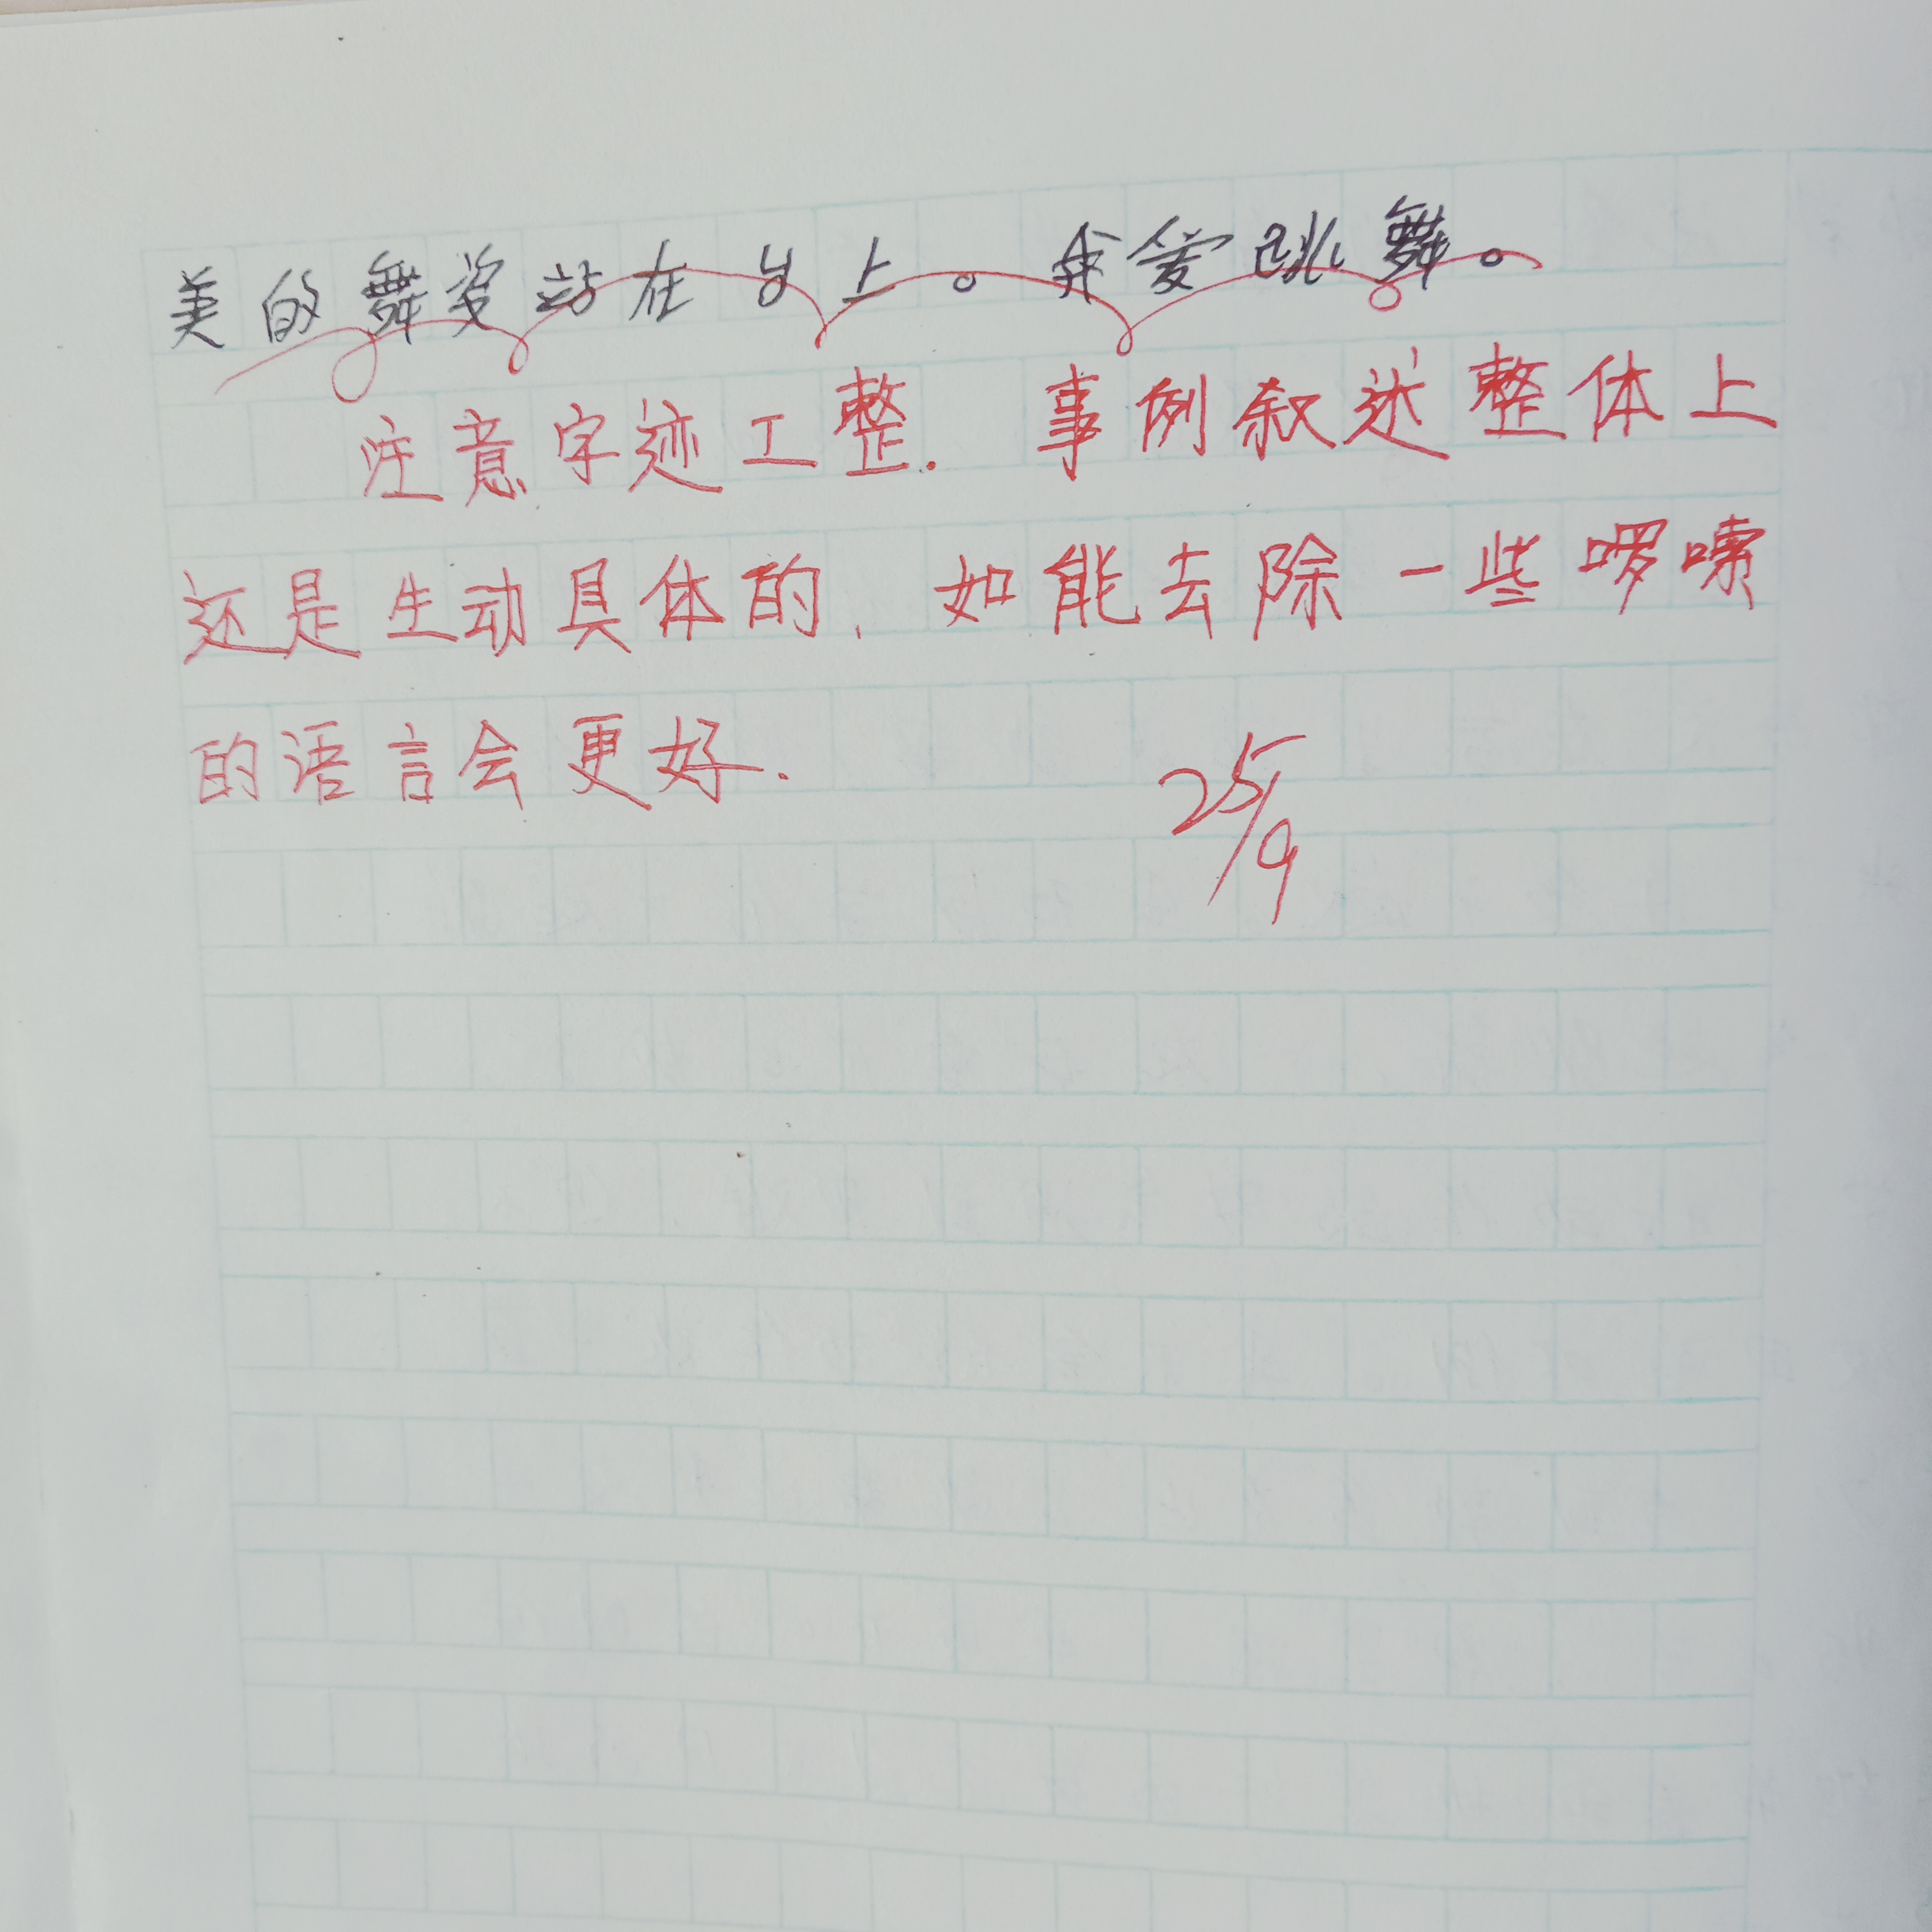 美的舞姿站在台上。我爱跳舞。
注意字迹工整.事例叙述整体上
还是生动具体的,如能去除一些啰嗦
的语言会更好.
25/9